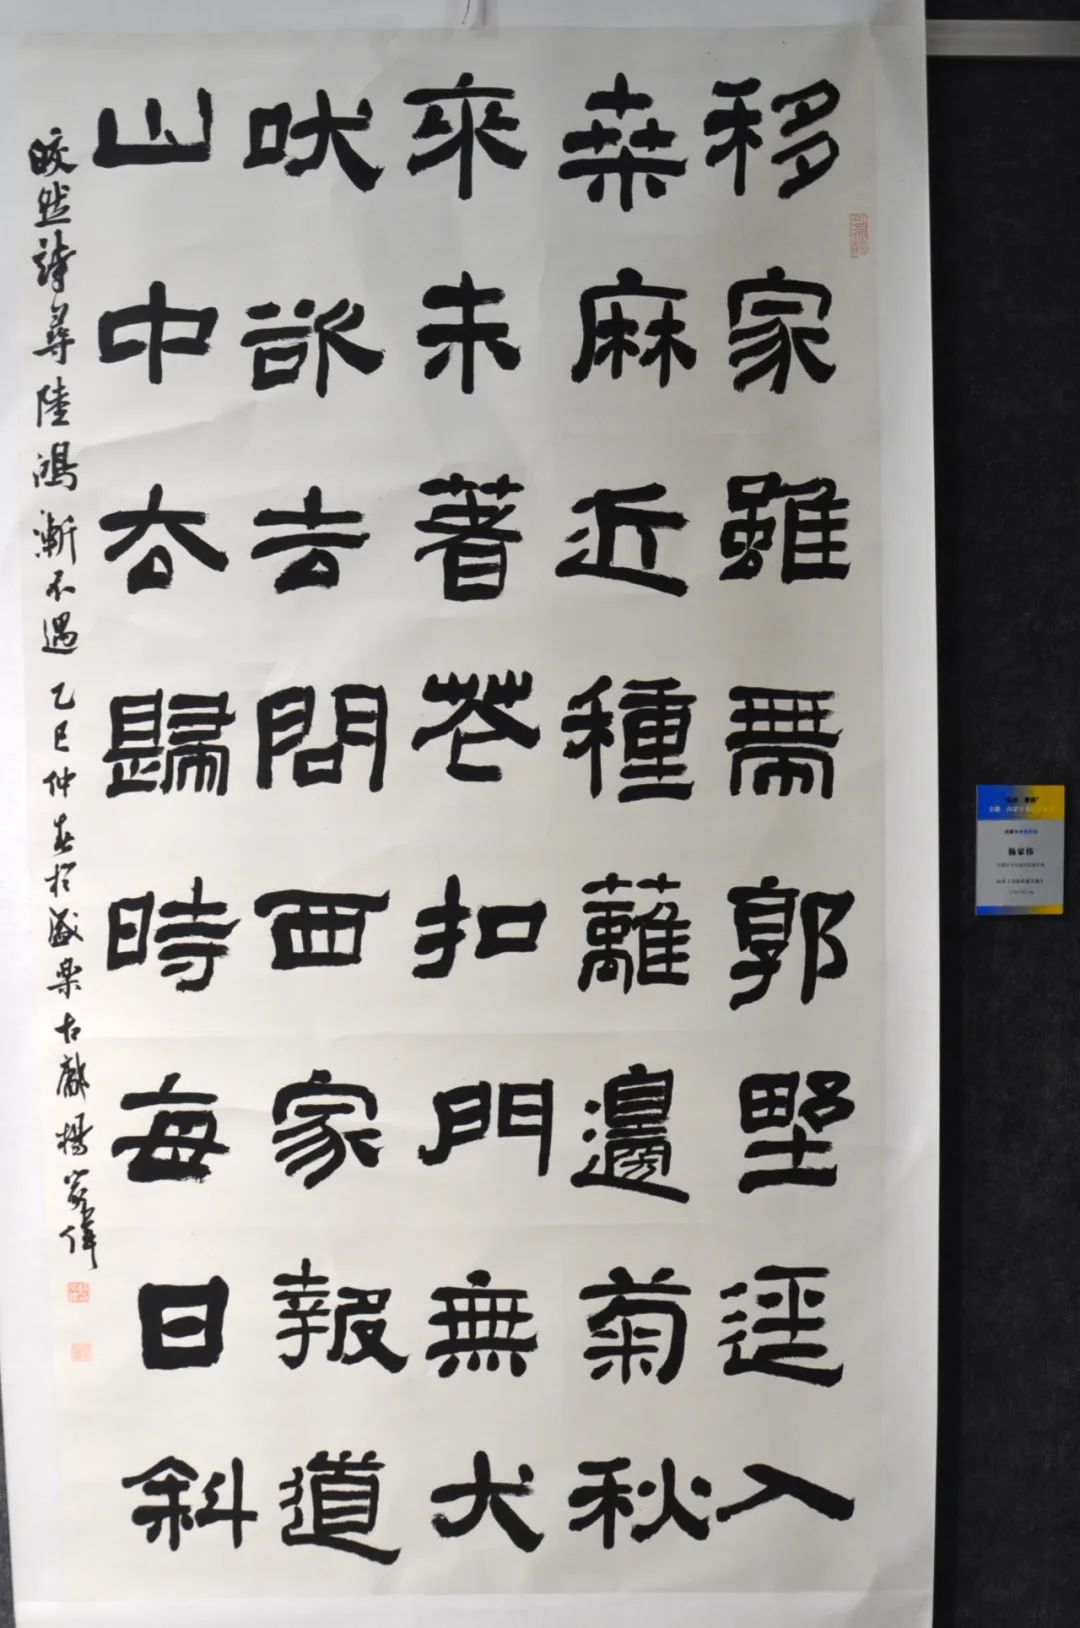 移家雖帶郭野逕入
桒麻近種蘺邊菊秋
來未著花扣門無犬
吠欲去問西家報道
山中去歸時每日斜
皎然詩尋陸鴻漸不遇 乙巳仲春於盛樂古都 楊家偉
杨家伟